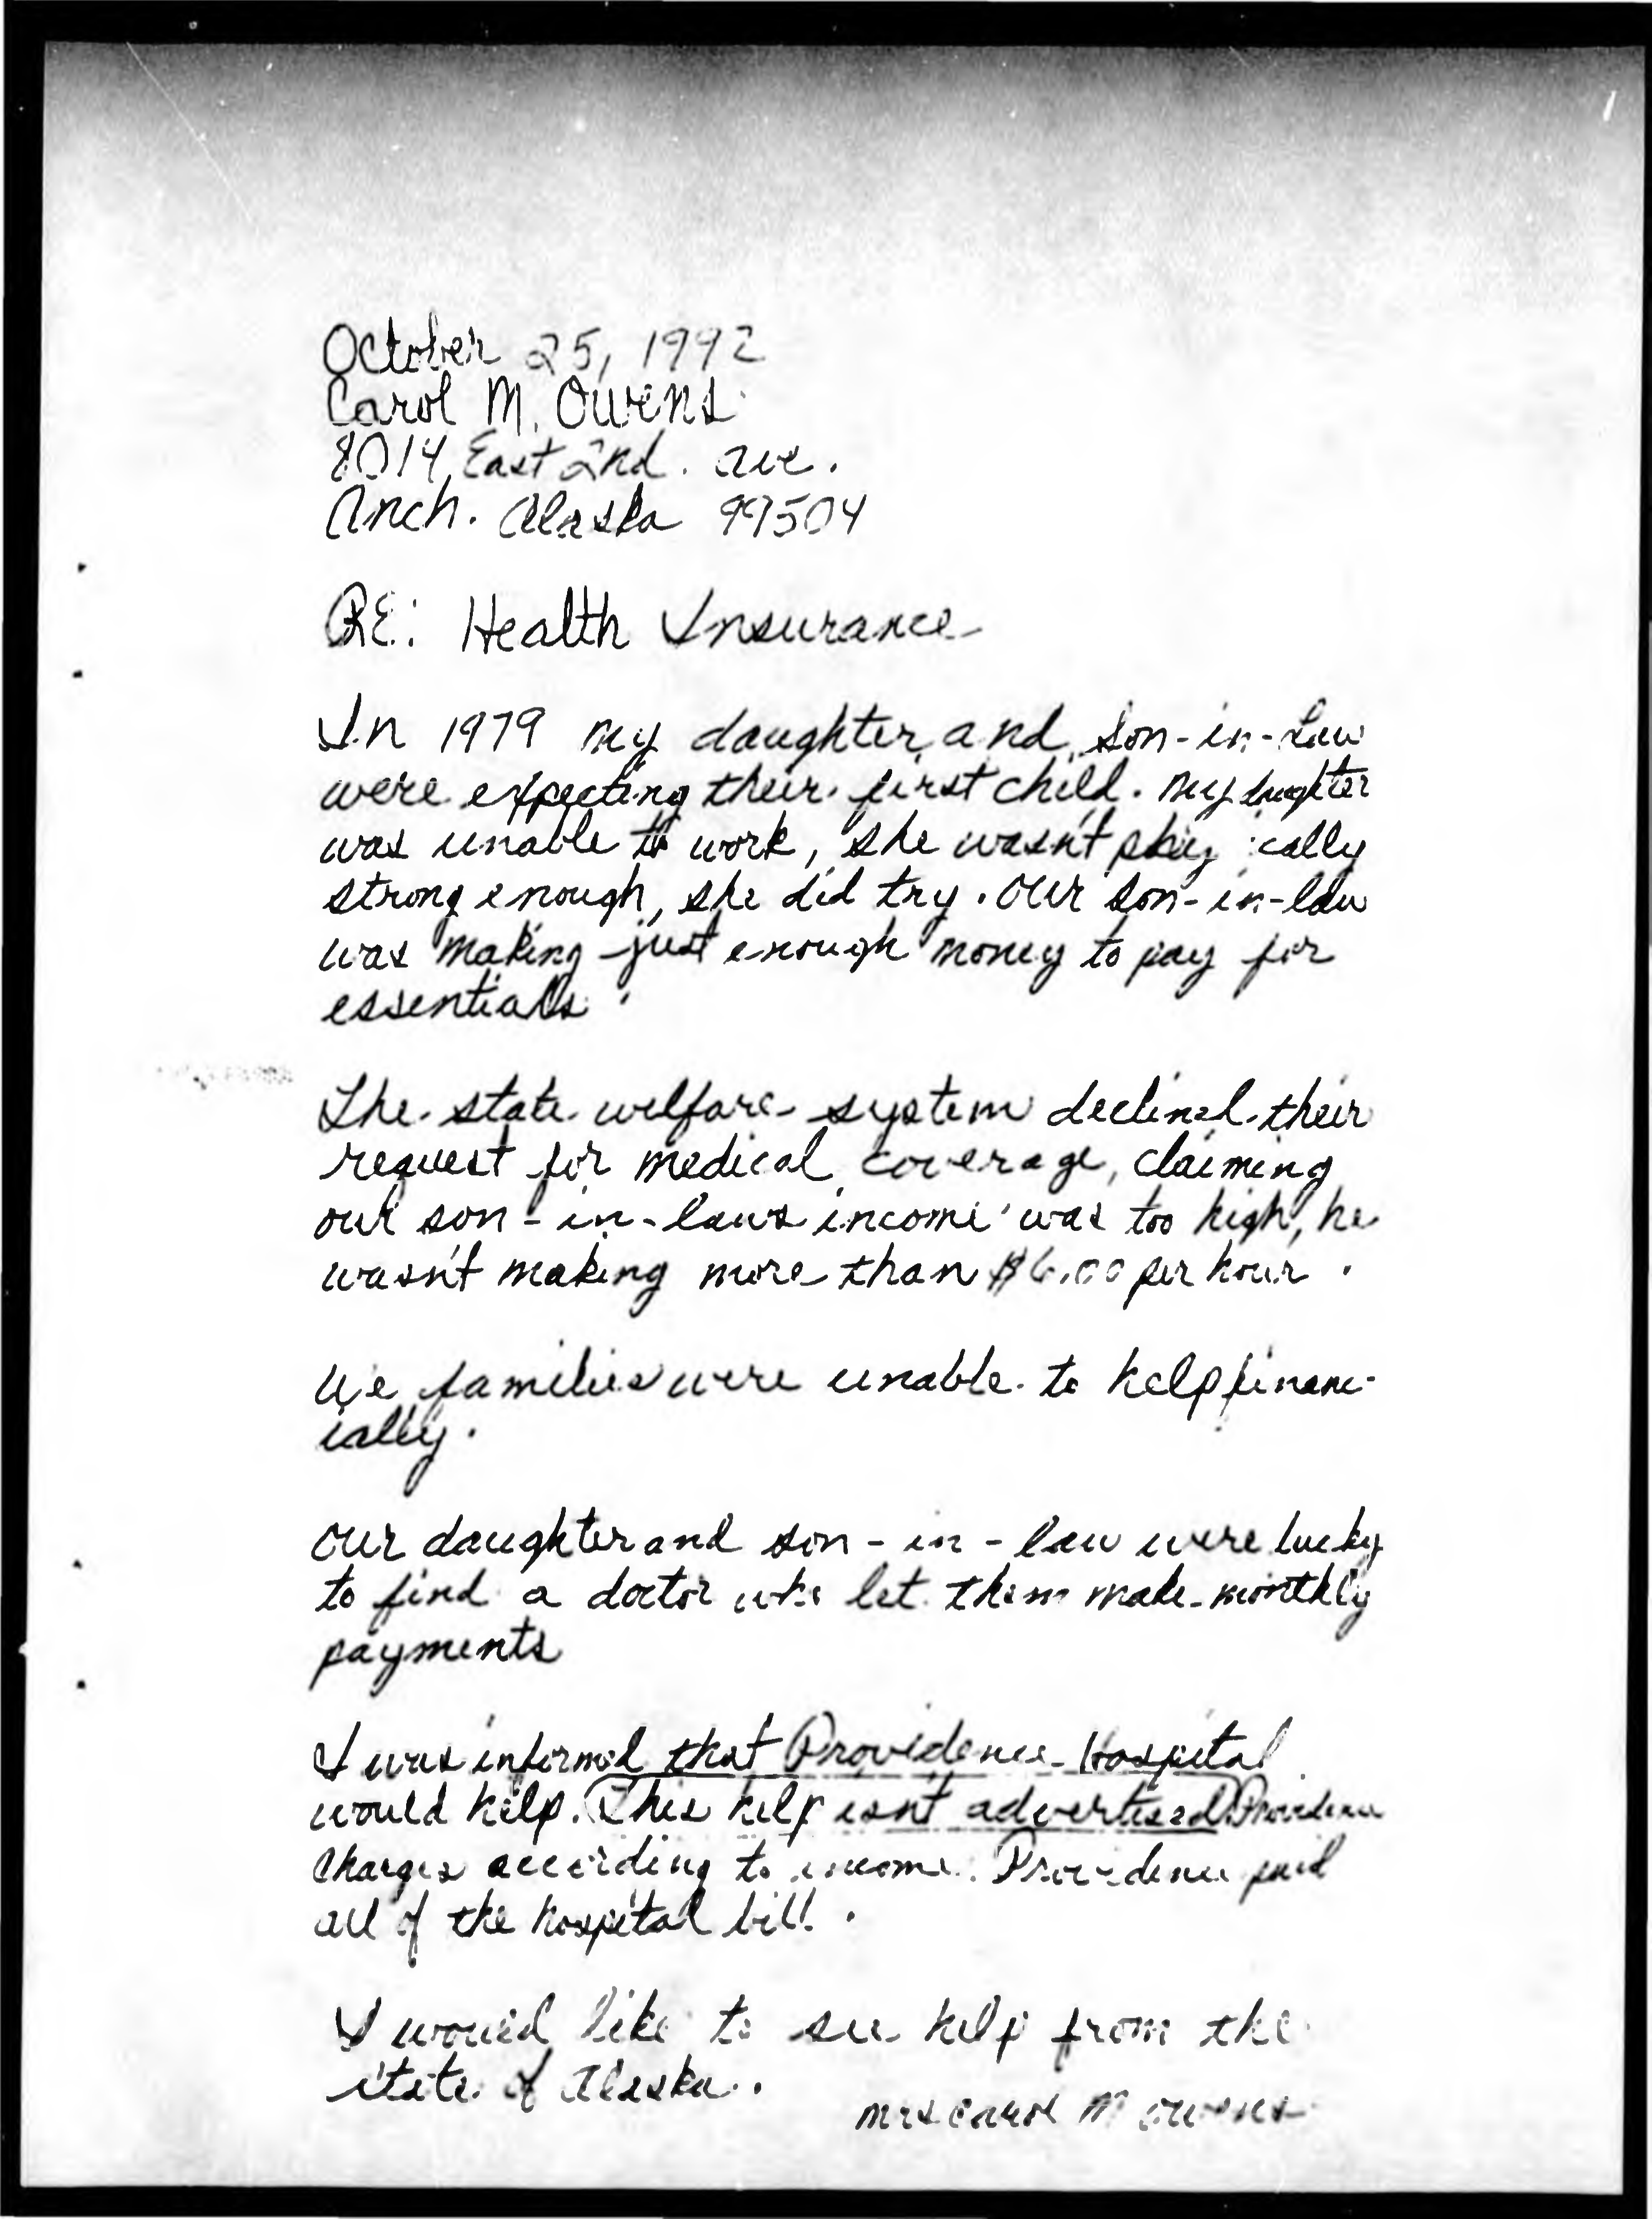 October 25, 1992
Carol M. Owens
8014 East 2nd. ave.
Anch. Alaska 99504
RE: Health Insurance
In 1979 my daughter and son-in-law
were expecting their first child. My daughter
was unable to work, she wasn't physically
strong enough, she did try. Our son-in-law
was making just enough money to pay for
essentials.
The state welfare system declined their
request for medical coverage, claiming
our son-in-laws income was too high, he
wasn't making more than $6.00 per hour.
We families were unable to help financ-
ially.
Our daughter and son-in-law were lucky
to find a doctor who let them make monthly
payments
I was informed that Providence Hospital
would help. This help isn't advertised. Providence
Charges according to income. Providence paid
all of the hospital bill.
I would like to see help from the
state of Alaska.
Mrs Carol M Owens